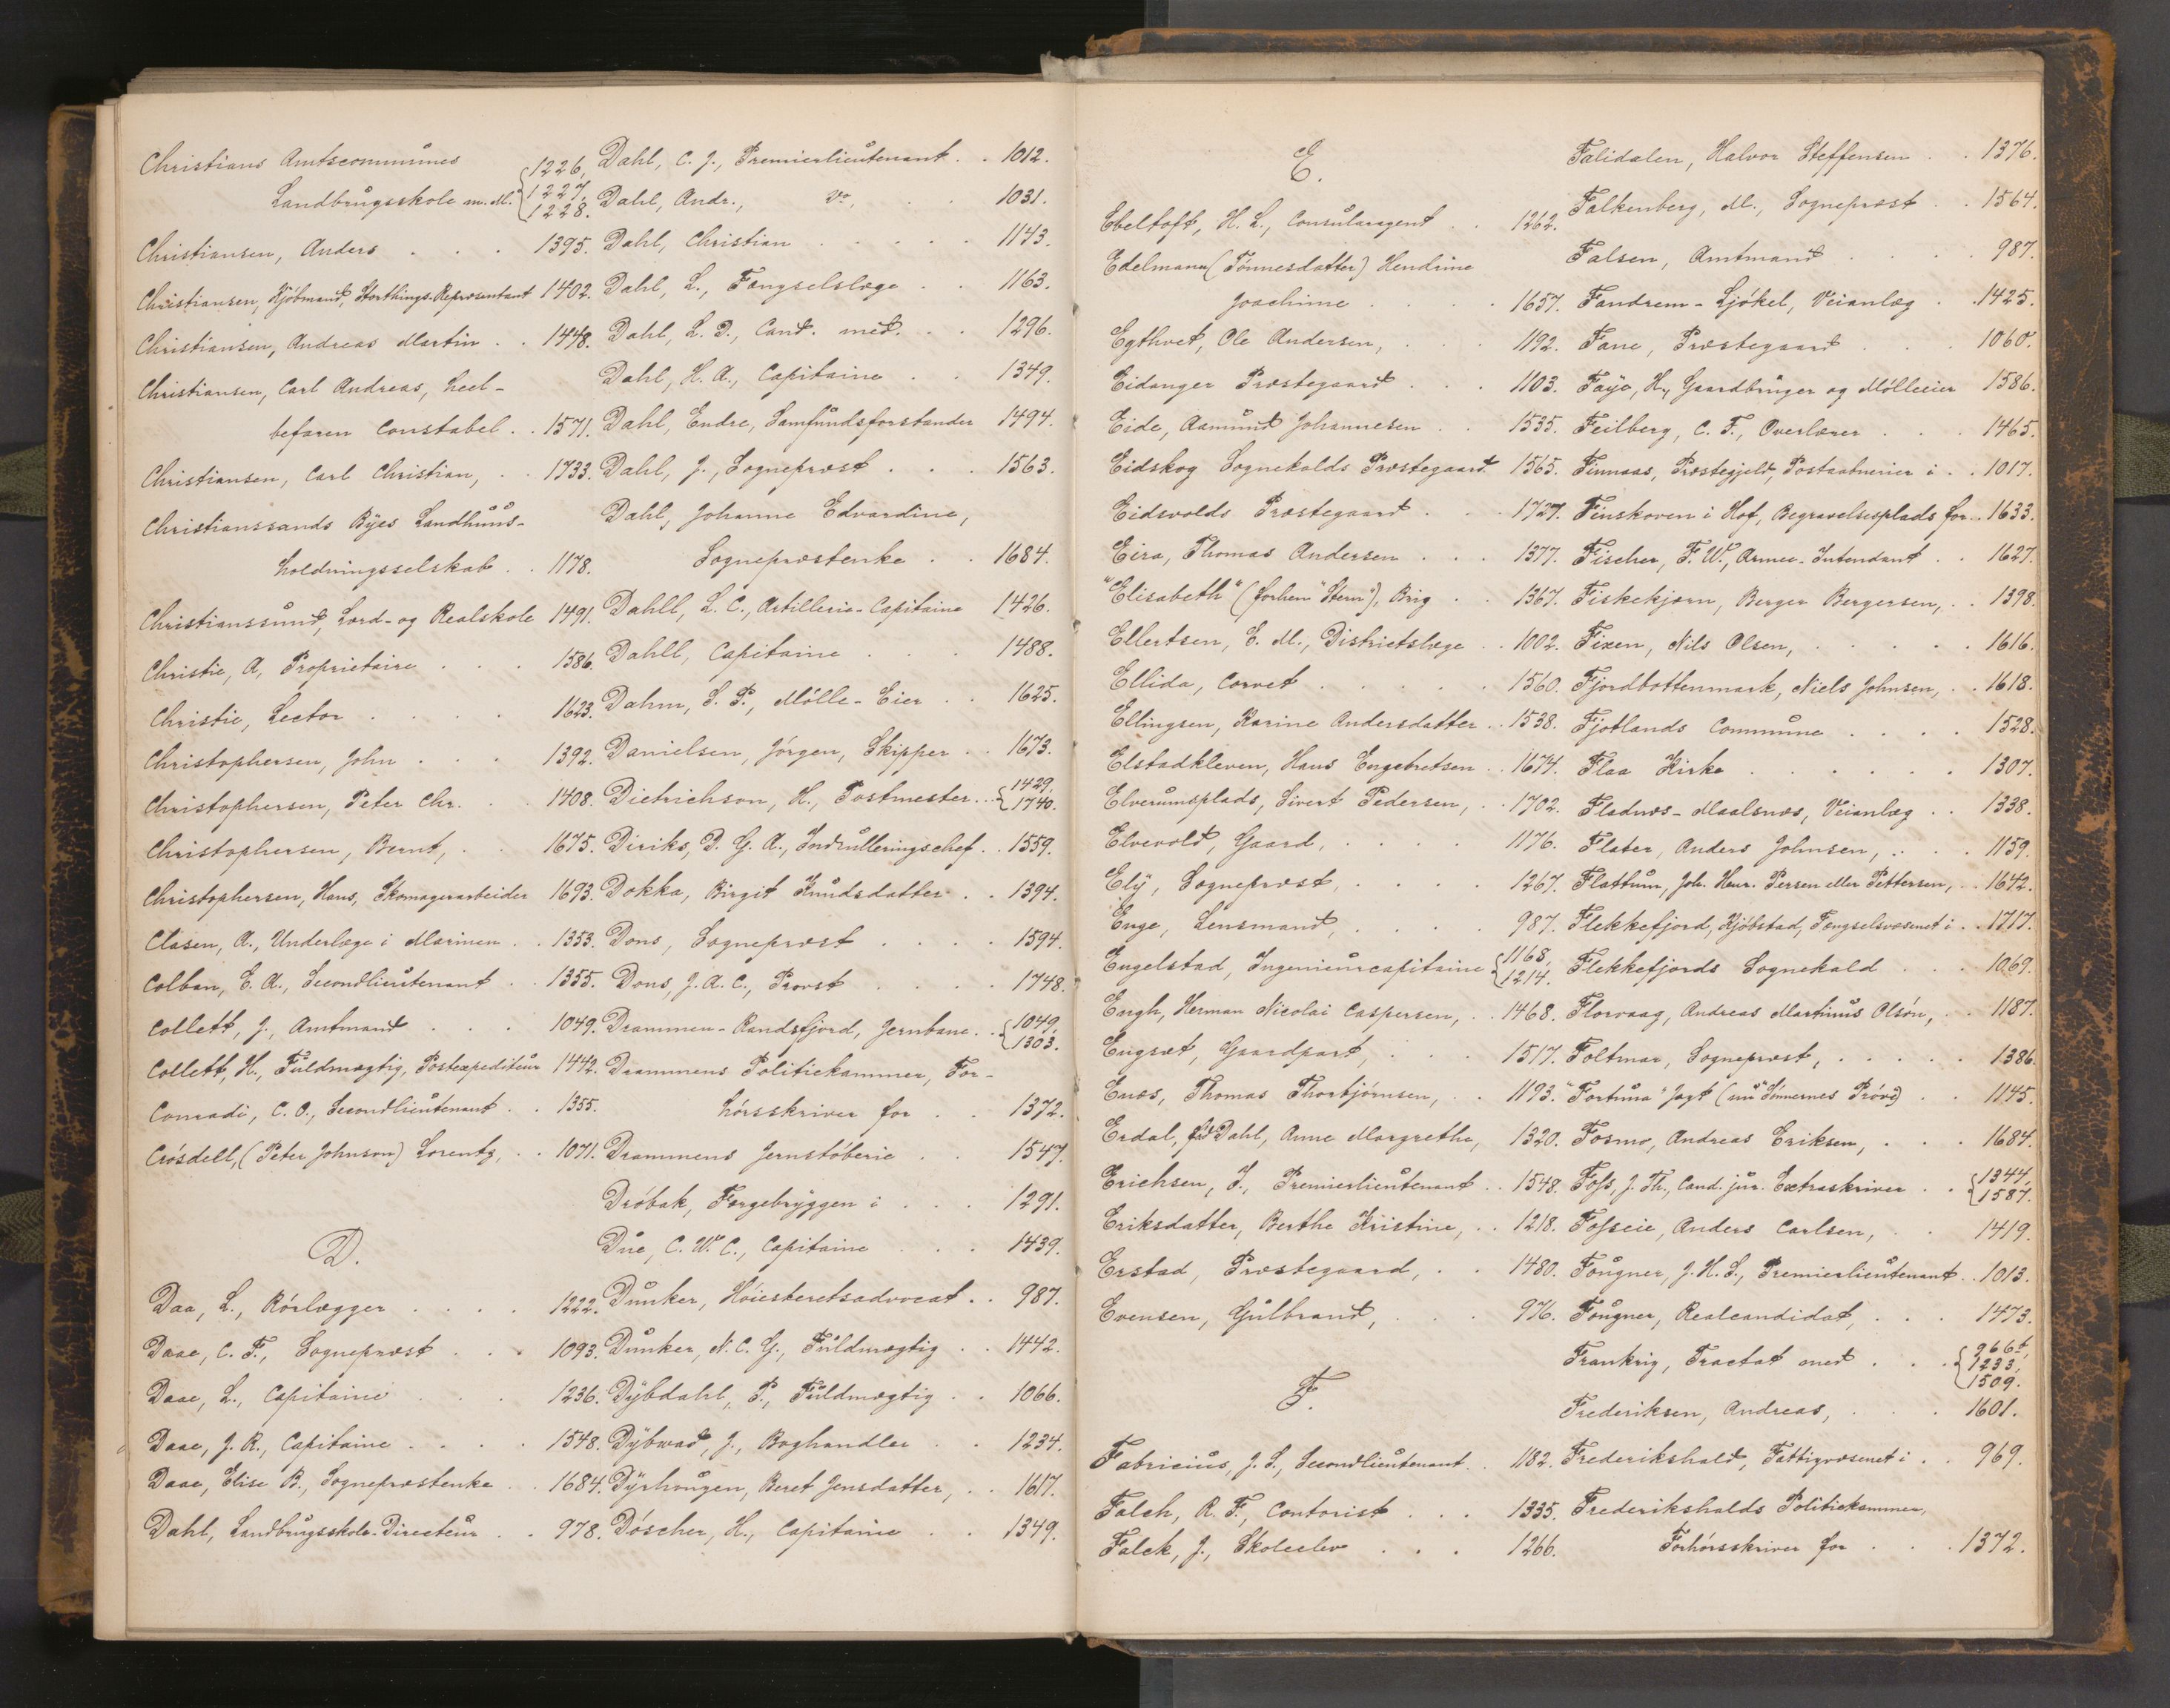 Christians Amtscommunes
Landbrugsskole m. M. {1226, 1227, 1228.
Christiansen, Anders . . . 1395.
Christiansen, Kjöbmand, Storthings-Repræsentant 1402.
Christiansen, Andreas Martin . . 1448.
Christiansen, Carl Andreas, heel-
befaren Constabel . . 1571.
Christiansen, Carl Christian, . . 1733.
Christianssands Byes Landhuus-
holdningsselskab . . 1178.
Christianssund, Lærd- og Realskole 1491.
Christie, A, Proprietaire . . . 1586.
Christie, Lector . . . . 1623.
Christophersen, John . . . 1392.
Christophersen, Peter Chr. . . 1408.
Christophersen, Bernt, . . 1675.
Christophersen, Hans, Skomagerarbeider 1693.
Clasen, A., Underlæge i Marinen . . 1353.
Colban, E. A., Secondlieutenant . . 1355.
Collett, J., Amtmand . . . 1049.
Collett, H., Fuldmægtig, Postexpediteur 1442.
Conradi, C. O., Secondlieutenant . . 1355.
Crósdell, (Peter Johnson) Lorentz, . . 1071.
D.
Daa, L., Rórlægger . . . . 1222.
Daae, C. F., Sognepræst . . . 1093.
Daae, L., Capitaine . . . 1236.
Daae, J. R., Capitaine . . . . 1548.
Daae, Elise B., Sognepræstenke . . 1684.
Dahl, Landbrugsskole-Directeur . . 978.
Dahl, C. J., Premierlieutenant . . 1012.
Dahl, Andr., do, . . 1031.
Dahl, Christian . . . . . 1143.
Dahl, L., Fængselslæge . . 1163.
Dahl, L. D., Cand. med. . . 1296.
Dahl, H. A., Capitaine . . 1349.
Dahl, Endre, Samfundsforstander 1494.
Dahl, J., Sognepræst . . . 1563.
Dahl, Johanne Edvardine,
Sognepræstenke . . 1684.
Dahll, L. C., Artillerie-Capitaine 1426.
Dahll, Capitaine . . . 1488.
Dahm, S. P., Mólle-Eier . . 1625.
Danielsen, Jórgen, Skipper . . 1673.
Dietrichson, H., Postmester . . {1429, 1740.
Diriks, D. G. A., Indrulleringschef . . 1559.
Dokka, Birgit Knudsdatter . . 1394.
Dons, Sognepræst . . . . 1594.
Dons, J. A. C., Provst . . . . 1748.
Drammen-Randsfjord, Jernbane . . {1049, 1303.
Drammens Politiekammer, For-
hórsskriver for . . 1372.
Drammens Jernstóberie . . 1547.
Dróbak, Færgebryggen i . . . 1291.
Due, C. W. C., Capitaine . . . 1439.
Dunker, Hóiesteretsadvocat . . 987.
Dunker, N. C. G., Fuldmægtig . . 1442.
Dybdahl, P., Fuldmægtig . . 1066.
Dybwad, J., Boghandler . . 1234.
Dyrhougen, Beret Jensdatter, . . 1617.
Dóscher, H., Capitaine . . 1349.
E.
Ebeltoft, H. L., Consularagent . . 1262.
Edelmann (Tónnesdatter) Hendrine
Joachime . . . . 1657.
Egthvet, Ole Andersen, . . . 1192.
Eidanger Præstegaard . . . 1103.
Eide, Aamund Johannesen . . 1535.
Eidskog Sognekalds Præstegaard 1565.
Eidsvolds Præstegaard . . . 1727.
Eira, Thomas Andersen . . . 1377.
"Elisabeth" (forhen "Stern"), Brig . . 1367.
Ellertsen, E. M., Districtslæge . . 1002.
Ellida, Corvet . . . . . 1560.
Ellingsen, Karine Andersdatter . . 1538.
Elstadkleven, Hans Engebretsen . . 1674.
Elverumsplads, Sivert Pedersen, . . 1702.
Elvevold, Gaard, . . . . 1176.
Ely, Sognepræst, . . . . 1267.
Enge, Lensmand, . . . . 987.
Engelstad, Ingenieurcapitaine {1168, 1214.
Engh, Herman Nicolai Caspersen, . . 1468.
Engsæt, Gaardpart, . . . 1517.
Enæs, Thomas Thorbjórnsen, . . 1193.
Erdal, fód Dahl, Anne Margrethe, 1320.
Erichsen, J., Premierlieutenant . . 1548.
Eriksdatter, Berthe Kristine, . . 1218.
Erstad, Præstegaard, . . 1480.
Evensen, Gulbrand, . . . 976.
F.
Fabricius, J. S., Secondlieutenant . . 1182.
Falch, R. F., Contorist . . . 1335.
Falck, J., Skoleelev . . . 1266.
Falidalen, Halvor Steffensen . . 1376.
Falkenberg, M., Sognepræst . . 1564.
Falsen, Amtmand . . . . 987.
Fandrem-Ljókel, Veianlæg . . 1425.
Fane, Præstegaard . . . 1060.
Faye, H., Gaardbruger og Mólleeier 1586.
Feilberg, C. F., Overlærer . . . 1465.
Finnaas, Præstegjeld, Postaabnerier i . . 1017.
Finskoven i Hof, Begravelsesplads for . . 1633.
Fischer, F. W., Armee-Intendant . . 1627.
Fiskekjærn, Berger Bergersen, . . 1398.
Fixen, Nils Olsen, . . . . . 1616.
Fjordbottenmark, Niels Johnsen, . . 1618.
Fjotlands Commune . . . . 1528.
Flaa Kirke . . . . . . 1307.
Fladnæs-Maalsnæs, Veianlæg . . 1338.
Flater, Anders Johnsen, . . . 1159.
Flattum, Joh. Henr. Persen eller Pettersen, . . 1642.
Flekkefjord, Kjöbstad, Fængselsvæsenet i . . 1717.
Flekkefjords Sognekald . . . 1069.
Florvaag, Andreas Martinus Olsón, . . 1187.
Foltmar, Sognepræst, . . . . . 1386.
"Fortuna" Jagt (nu "Sónnernes Próve) . . 1145.
Fosmo, Andreas Eriksen, . . . 1684.
Foss, J. Th., Cand. jur. Extraskriver . . {1344, 1587.
Fosseie, Anders Carlsen, . . 1419.
Fougner, J. H. S., Premierlieutenant . . 1013.
Fougner, Realcandidat, . . . 1473.
Frankrig, Tractat med . . . {966t, 1233, 1509.
Frederiksen, Andreas, . . . 1601.
Frederikshald, Fattigvæsenet i . . 969.
Frederikshalds Politiekammer,
Forhórsskriver for . . . 1372.